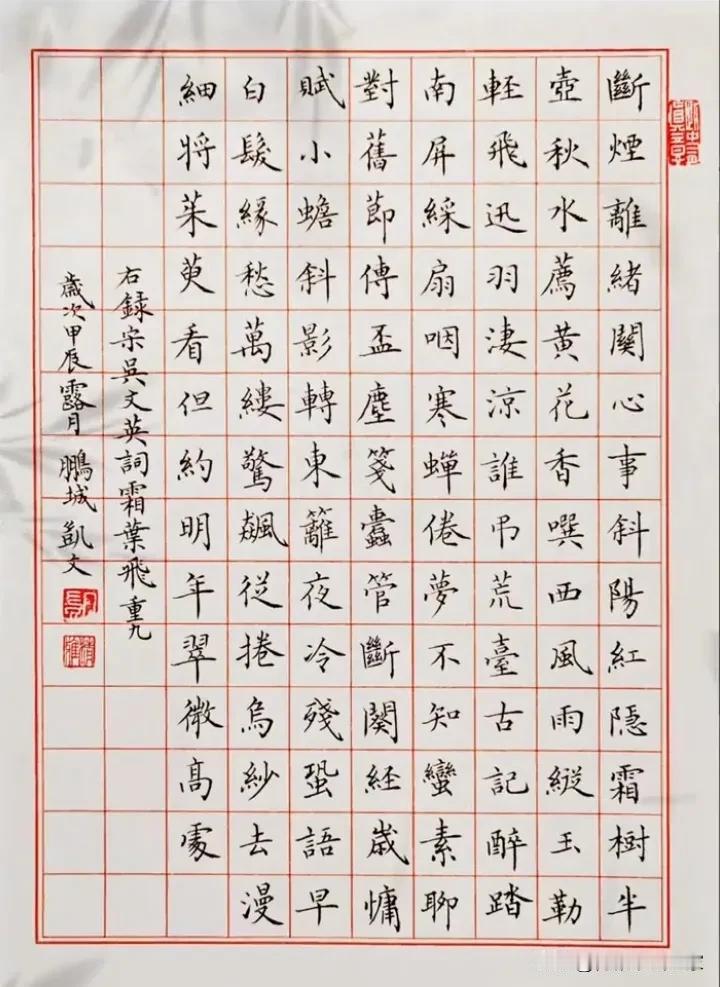 斷煙離緒關心事斜陽紅隱霜樹半
壺秋水薦黃花香噀西風雨縱玉勒
輕飛迅羽淒涼誰弔荒臺古記醉踏
南屏綵扇咽寒蟬倦夢不知蠻素聊
對舊節傳盃塵箋蠹管斷闋経歲慵
賦小蟾斜影轉東籬夜冷殘蛩語早
白髮緣愁萬縷驚飆從捲烏紗去漫
細将茱萸看但約明年翠微高處
右録宗吳文英詞霜葉飛重九
歲次甲辰露月鵬城凱文